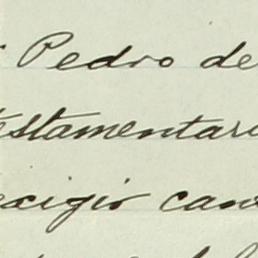 Pedro de
estamentari
exigio can